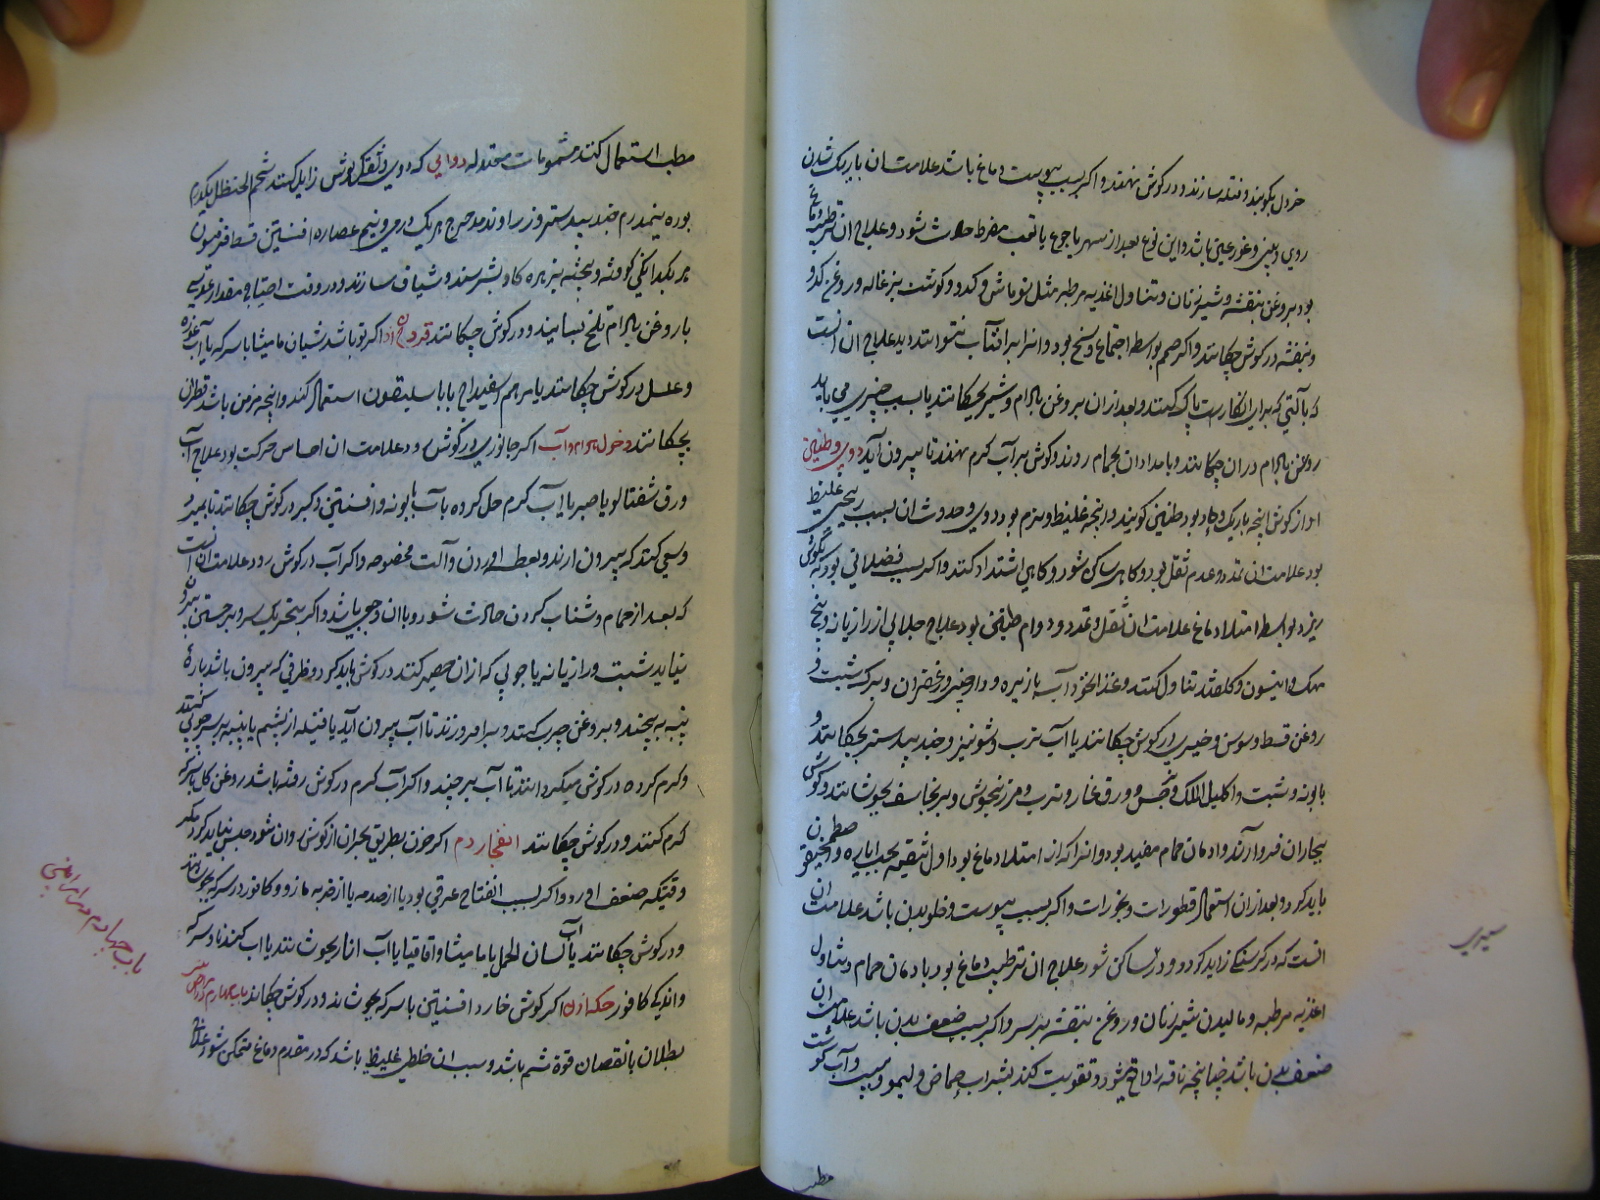 خردل بکوبند و فتله سازند و در کوش نهند و اکر بسبب یبوست دماغ باشد علامت ان باریک شدن
روی و بینی و غور عین باشد و این نوع بعد از سهر یا جوع یا تعب مفرط حادث شود و علاج ان ترطیب دماغ
بود بروغن بنفشه و شیر زنان و تناول اغذیه مرطبه مثل نو ماش و کدو و کوشت بزغاله و روغن کدو
و بنفشه در کوش چکانند و اکر صمم بواسطه اجتماع وسخ بود و انرا برافتاب بتوانند دید علاج ان انست
که بآلتی که برای انکارست پاک کنند و بعد ازان بروغن بادام و شیر بچکانند یا بسبب چیزی می باید
روغن بادام دران چکانند و بامدادان بحمام روند و کوش بر آب کرم نهند تا بیرون آید دوی و طنین
اواز کوش انچه باریک و حاد بود طنین کویند و انچه غلیظ و نرم بود دوی و حدوث ان بسبب ریحی غلیظ
بود علامت ان تمدد و عدم ثقل بود و کاه ساکن شود و کاهی اشتداد کند و اکر بسبب فضلاتی بود که بکوش
ریزد بواسطه امتلاء دماغ علامت ان ثقل و تمدد و دوام طنین بود علاج جلابی از رازیانه و بیخ
مهک و انیسون و کلقند تناول کنند و غذا نخود آب با زیره و دارچینی و زعفران و برک شبت و
روغن قسط و سوسن و خیری در کوش چکانند یا آب ترب و شونیز و جندبیدستر بچکانند و
بابونه و شبت و اکلیل الملک و ورق غار و ترب و مرزنجوش و برنجاسف بجوشانند و کوش
ببخاران فرو دارند و ادمان حمام مفید بود و انرا که از امتلاء دماغ بود اول تنقیه بحب ایاره و اصطمخیقون
باید کرد و بعد ازان استعمال قطورات و بخورات و اکر بسبب یبوست و خلو بدن باشد علامت ان
انست که در کرسنکی زاید کردد و در ساکن شود علاج ان ترطیب دماغ بود بادمان حمام و تناول
اغذیه مرطبه و مالیدن شیر زنان و روغن بنفشه بر سر و اکر بسبب ضعف بدن باشد علامت ان
ضعف بدن باشد چنانچه ناقه را واقع شود و تقویت کند بشراب حماض و لیمو و سیب و آب کوشت
مطیب
مطیب استعمال کنند و مشمومات معتدله دوایی که دوی و ثقل کوش زایل کند شحم الحنظل یکدرم
بوره نیمدرم جندبیدستر و زراوند مدحرج هر یک درمی و نیم عصاره افسنتین قسط فرفیون
هر یکدانکی کوفته و بیخته بزهره کاو بسرشند و شیاف سازند و در وقت احتیاج مقدار عدسی
با روغن بادام تلخ بسایند و در کوش چکانند قروح اذن اکر نو باشد شیاف مامیثا با سرکه یا آب غوره
و عسل در کوش چکانند یا مرهم اسفیداج یا باسلیقون استعمال کند و انچه مزمن باشد قطران
بچکانند دخول هوام و آب اکر جانوری در کوش رود علامت ان احساس حرکت بود علاج آب
ورق شفتالو یا صبر با آب کرم حل کرده یا آب بابونه و افسنتین در کوش چکانند تا بمیرد
وسعی کنند که بیرون ارند و بعطسه اوردن و آلت مخصوصه و اکر آب در کوش رود علامت ان انست
که بعد از حمام و شناب کردن حادث شود و باان وجعی باشد و اکر بتحریک سر و برجستن بیرون
نیاید شبت و رازیانه یا چوبی که ازان حصیر کنند در کوش باید کرد و طرفی که بیرون باشد پاره
پنبه بپیچند و بروغن چرب کنند و برافروزند تا آب بیرون آید یا فتیله از پشم یا پنبه بر چوبی کنند
و کرم کرده در کوش میکردانند تا آب برچیند و اکر آب کرم در کوش رفته باشد روغن کل با سرکه
کرم کنند و در کوش چکانند انفجار دم اکر خون بطریق بحران از کوش روان شود حبس نباید کرد مکر
وقتیکه ضعف اورد و اکر بسبب انفتاح عرقی بود یا از صدمه یا از ضربه مازو و کافور در سرکه بجوشانند
و در کوش چکانند یا آب لسان الحمل با مامیثا و اقاقیا یا آب انار بجوشانند با آب کندنا و سرکه
و اندکی کافور حکه اذن اکر کوش خارد افسنتین با سرکه بجوشاند و در کوش چکاند باب چهارم در امراض بینی
بطلان یا نقصان قوة شم باشد و سبب ان خلطی غلیظ باشد که در مقدم دماغ متمکن شود علاج
باب چهارم در امراض بینی